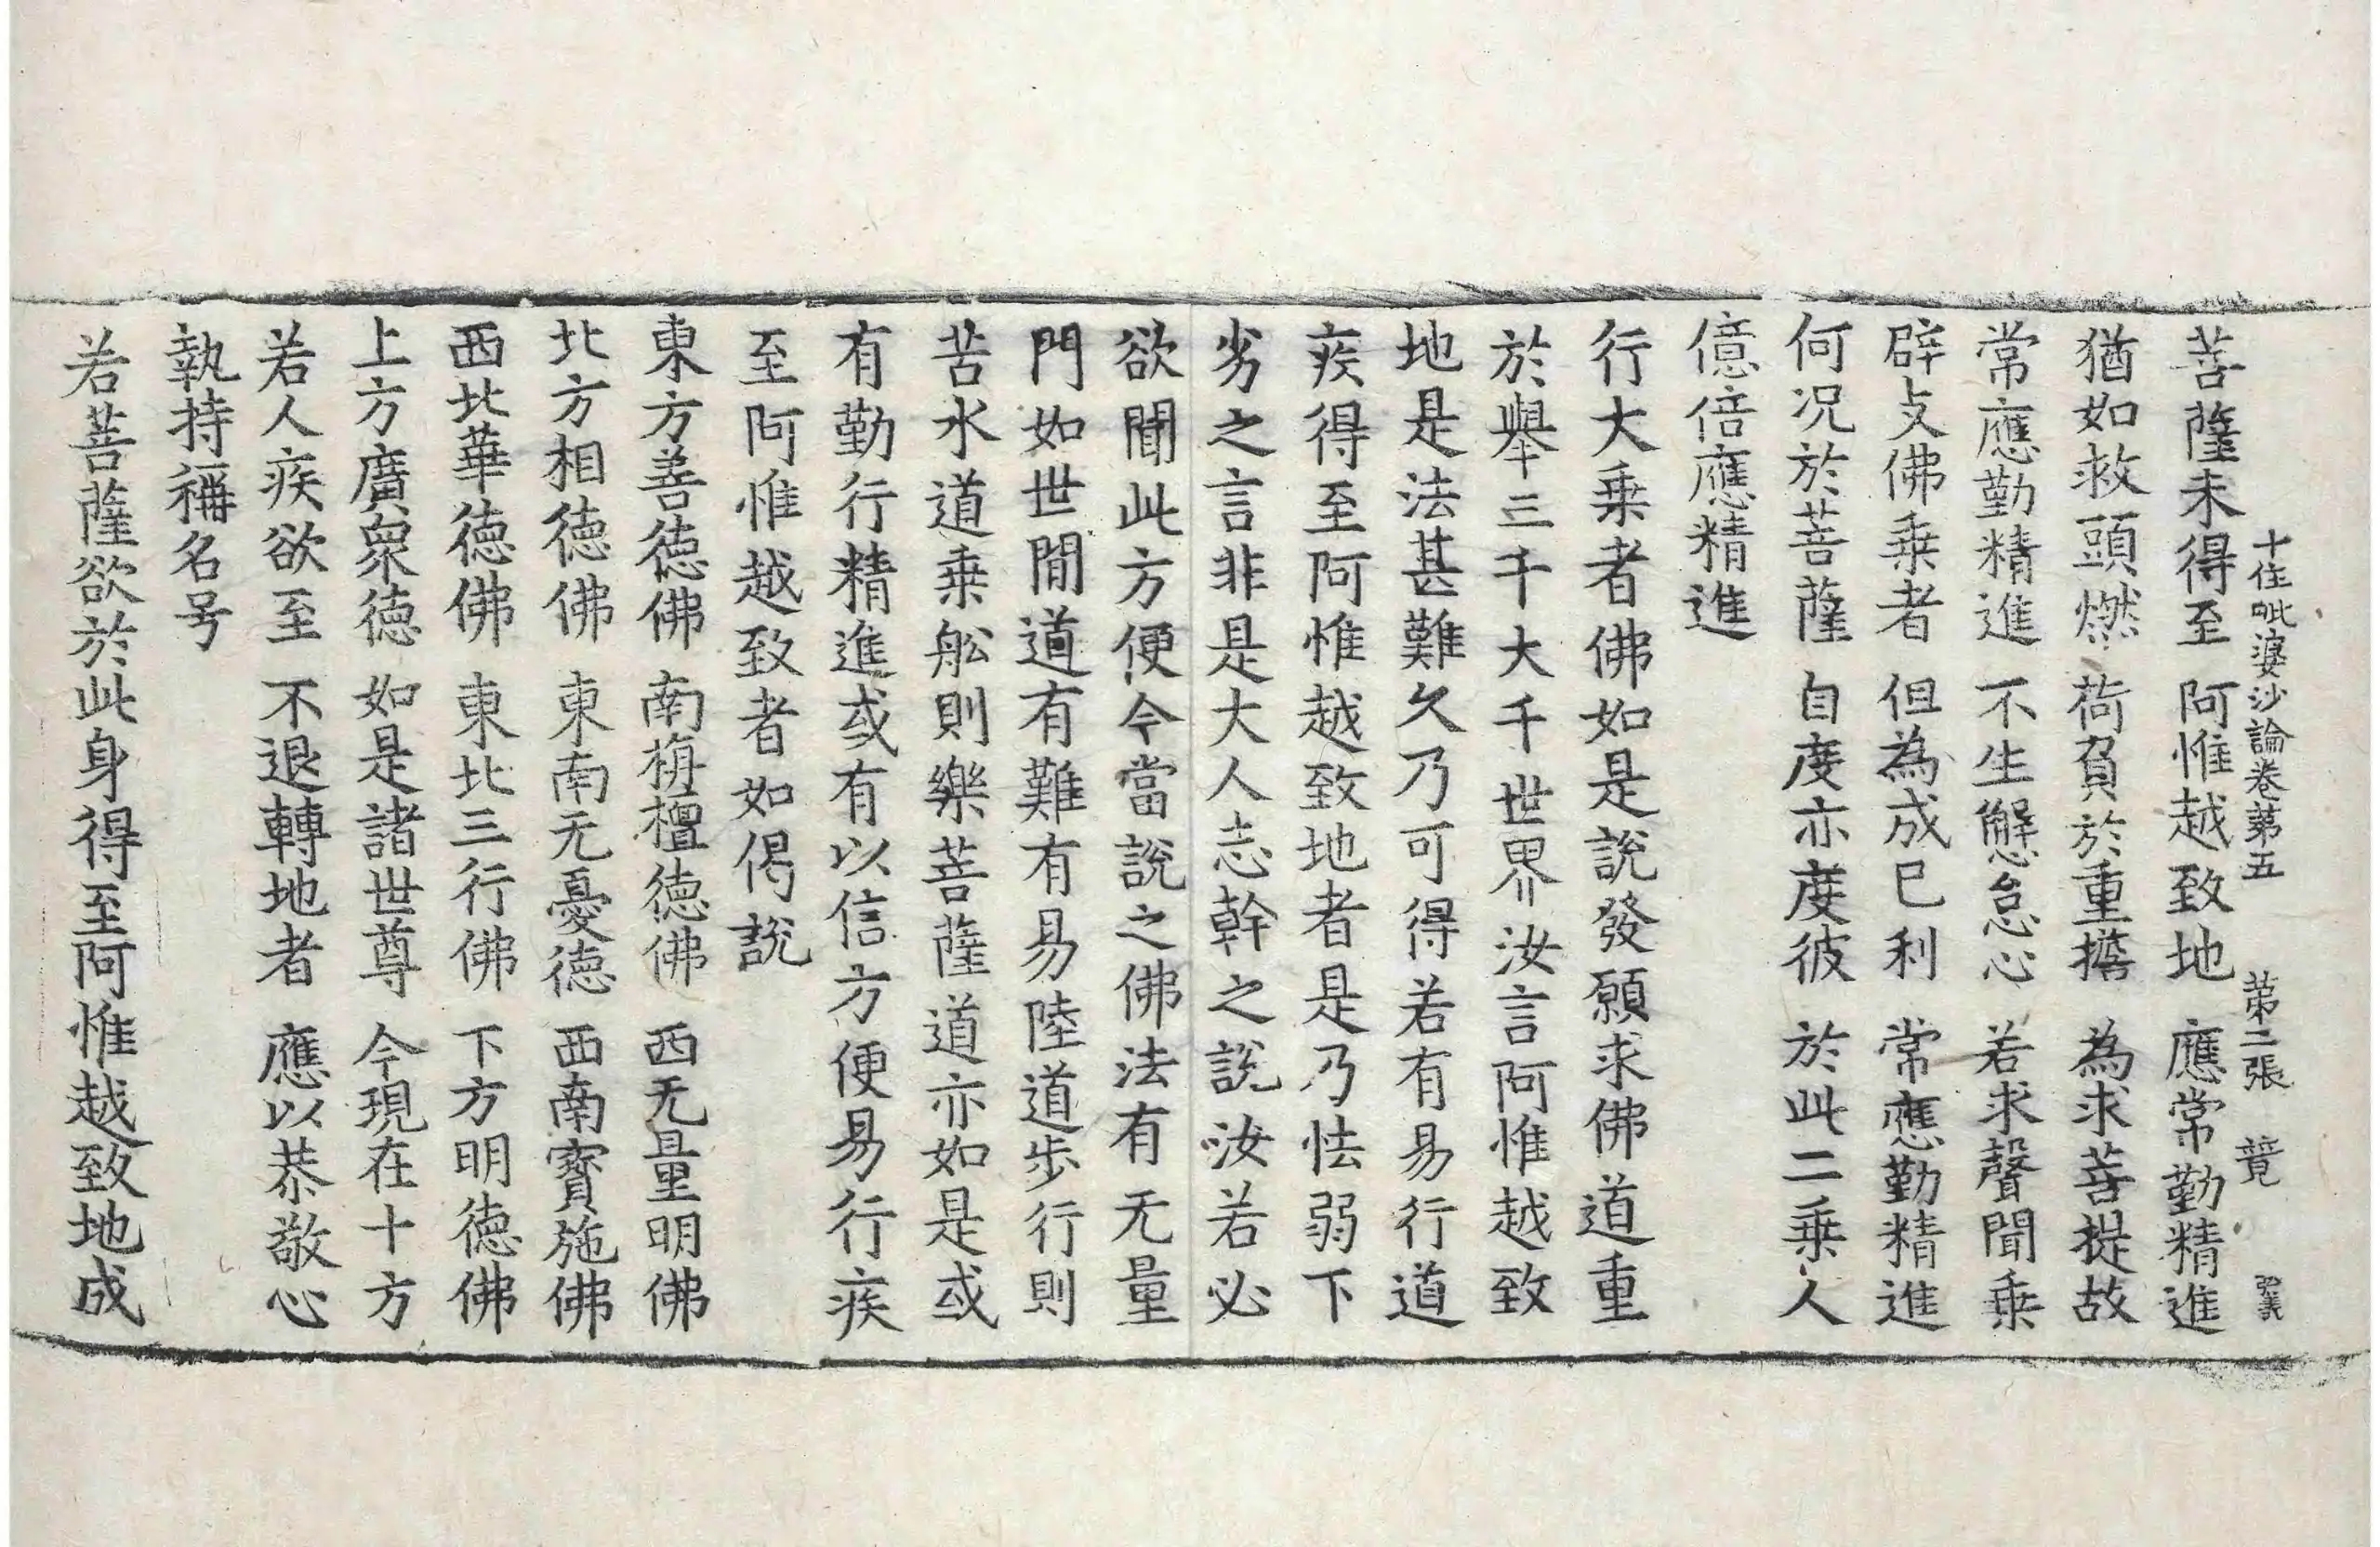 十住毗婆沙論卷第五 第二張 競
菩薩未得至 阿惟越致地 應常勤精進
猶如救頭燃 荷負於重擔 為求菩提故
常應勤精進 不生懈怠心 若求聲聞乗
辟支佛乗者 但為成已利 常應勤精進
何况於菩薩 自度亦度彼 於此二乗人
億倍應精進
行大乗者佛如是說發願求佛道重
於舉三千大千世界汝言阿惟越致
地是法甚難久乃可得若有易行道
疾得至阿惟越致地者是乃怯弱下
劣之言非是大人志幹之說汝若必
欲聞此方便今當說之佛法有无量
門如世間道有難有易陸道步行則
苦水道乗舩則樂菩薩道亦如是或
有勤行精進或有以信方便易行疾
至阿惟越致者如偈說
東方善德佛 南栴檀德佛 西无量明佛
北方相德佛 東南无憂德 西南寶施佛
西北華德佛 東北三行佛 下方明德佛
上方廣眾德 如是諸世尊 今現在十方
若人疾欲至 不退轉地者 應以恭敬心
執持稱名号
若菩薩欲於此身得至阿惟越致地成